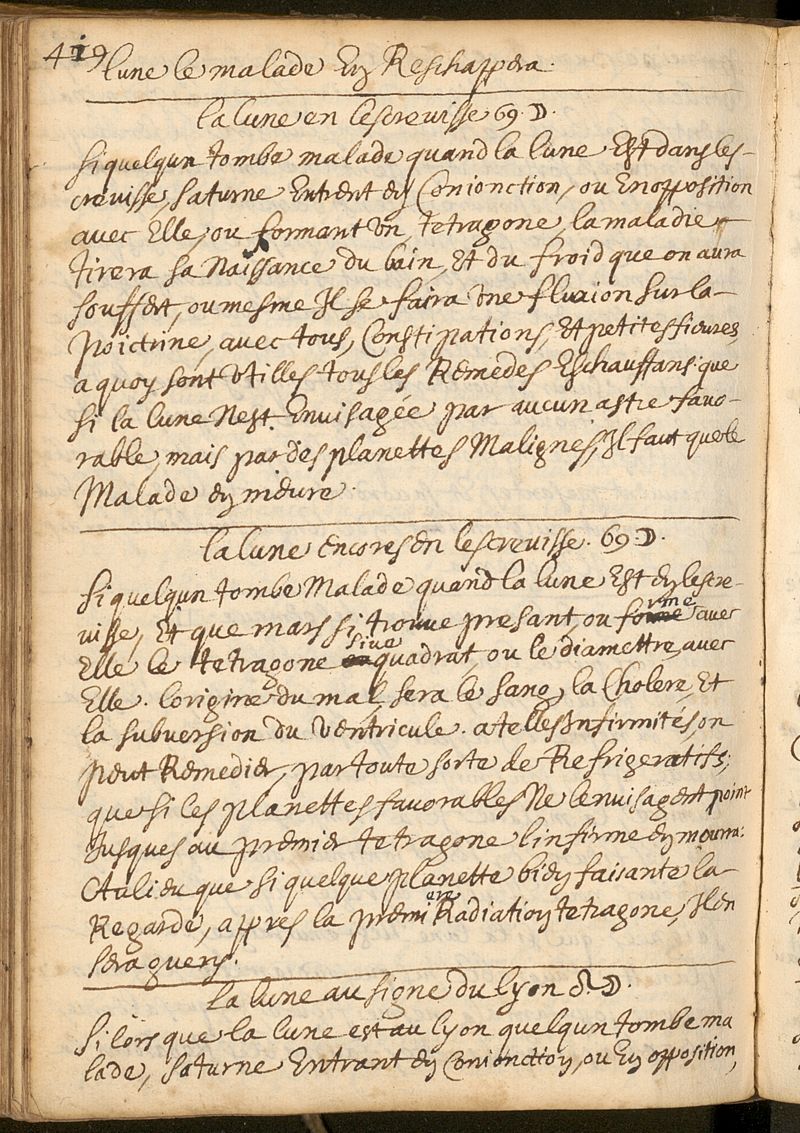 419
lune le malade En Reschappera.
la lune en lescrevisse 69. D.
Si quelqun tombe malade quand la lune Est dans les-
crevisse, saturne Entrent en Conionction, ou En opposition
avec Elle, ou formant Vn tetragone, la maladie
tirera sa Naissance du bain, Et du froid que on aura
souffert, ou mesme Il se faira vne fluxion sur la
poictrine, avec tous, Constipations, Et petites fievres,
a quoy sont Vtilles tous les Remedes Eschauffans. que
si la lune Nest Envisagée par aucun astre favo-
rable, mais par des planettes Malignes, Il faut que le
Malade en meure.
la lune encores en lescrevisse. 69. D.
Si quelqun tombe Malade quand la lune Est en lescre-
visse, Et que mars si trouve presant ou forme avec
Elle le tetragone sive quadrat, ou le diamettre avec
Elle. lorigine du mal sera le sang, la Cholere, Et
la subversion du Ventricule. a telles Infirmités, on
peut Remedier, par toute sorte de Refrigeratifs;
que si les planettes favorables Ne lenvisagent point
Jusques au premier tetragone linfirme en mourra:
Au lieu que si quelque planette bien faisante la
Regarde, appres la premiere Radiation tetragone, Il en
sera guery.
la lune au signe du lyon ♌. D.
Si lors que la lune est au lyon quelqun tombe ma
lade, saturne Entrant en Conionction, ou En opposition,